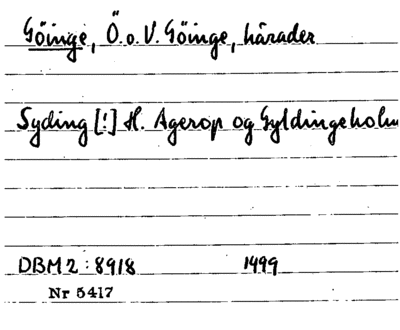 Göinge, Ö. o. V. Göinge, härader
Syding [!] H. Agerop og Gyldingeholm
DBM 2 : 8918 1499
Nr 5417